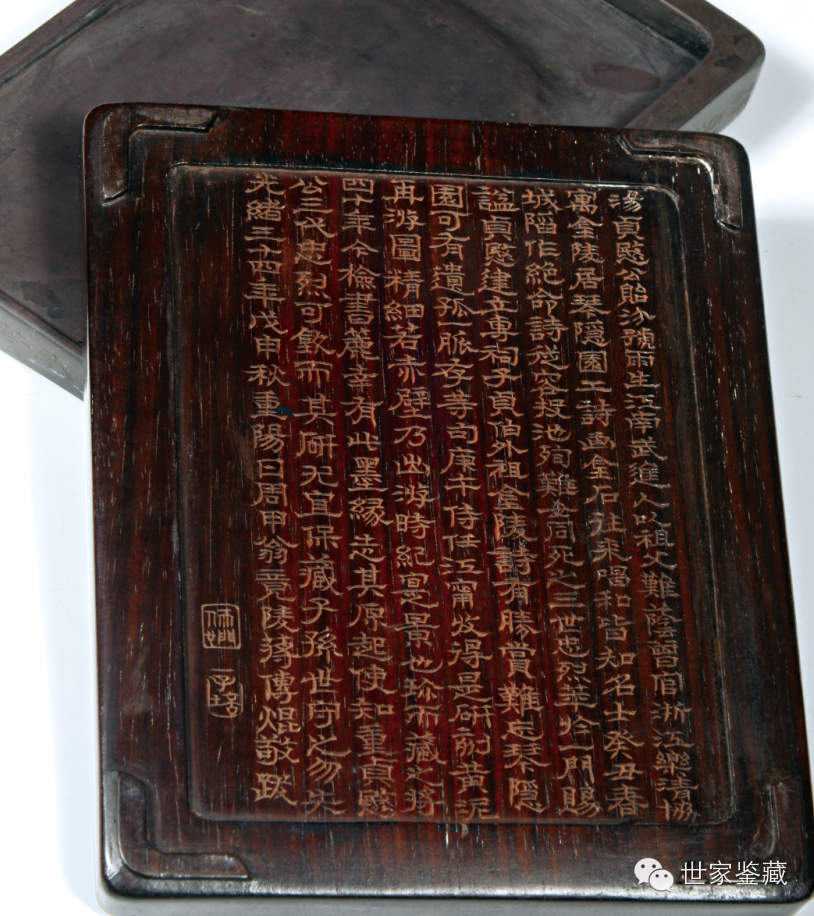 湯貞愍公貽汾號雨生江南武進人以祖父難蔭曾官浙江樂清協
寓金陵居琴隱園工詩畫金石往來唱和皆知名士癸丑春
城陷作絕命詩從容投池殉難同死之三世忠烈萃於一門賜
諡貞愍建立專祠子貞伯外祖金陵詩有勝賞難忘琴隱
園可有遺孤一脈存等句庚午侍任江甯收得是研刻黃泥
再游圖精細若赤壁乃出游時紀景也珍而藏之將
四十年今檢書簏幸有此墨緣志其原起使知重貞愍
公三代忠烈可敬而其研尤宜保藏子孫世守之勿失
光緒三十四年戊申秋重陽日周甲翁竟陵蔣傅焜敬跋
世家鉴藏